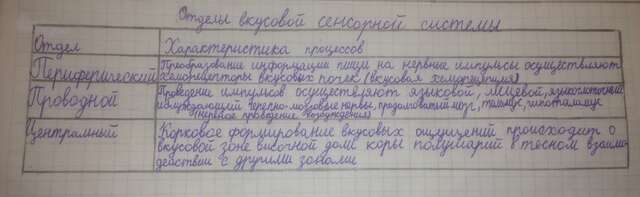 Отделы вкусовой сенсорной системы
Отдел
Характеристика процессов
Периферический
Преобразование информации пищи на нервные импульсы осуществляют
хеморецепторы вкусовых почек (вкусовая хеморецепция)
Проводной
Проведение импульсов осуществляют языковой, лицевой, языкоглоточный
блуждающий черепно-мозговые нервы, продолговатый мозг, таламус, гипоталамус
(нервное проведение возбуждения)
Центральный
Корковое формирование вкусовых ощущений происходит в
вкусовой зоне височной доли коры полушарий в тесном взаимо
действии с другими зонами